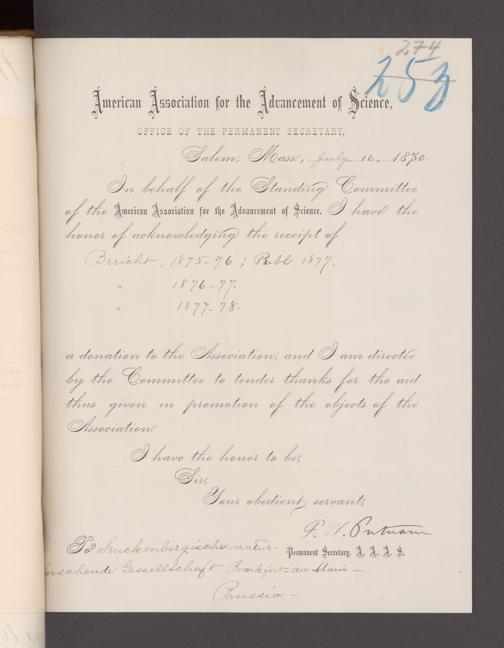 274
253
American Association for the Advancement of Science,
OFFICE OF THE PERMANENT SECRETARY,
Salem, Mass., July 16, 1880.
In behalf of the Standing Committee
of the American Association for the Advancement of Science, I have the
honor of acknowledging the receipt of
Bericht, 1875-76; Publ. 1877.
" 1876-77.
" 1877-78.
a donation to the Association, and I am directed
by the Committee to tender thanks for the aid
thus given in promotion of the objects of the
Association.
I have the honor to be,
Sir,
Your obedient servant,
F. W. Putnam
Permanent Secretary, A. A. A. S.
To Senckenbergische natur
forschende Gessellschaft Frankfort-au Main -
Prussia -